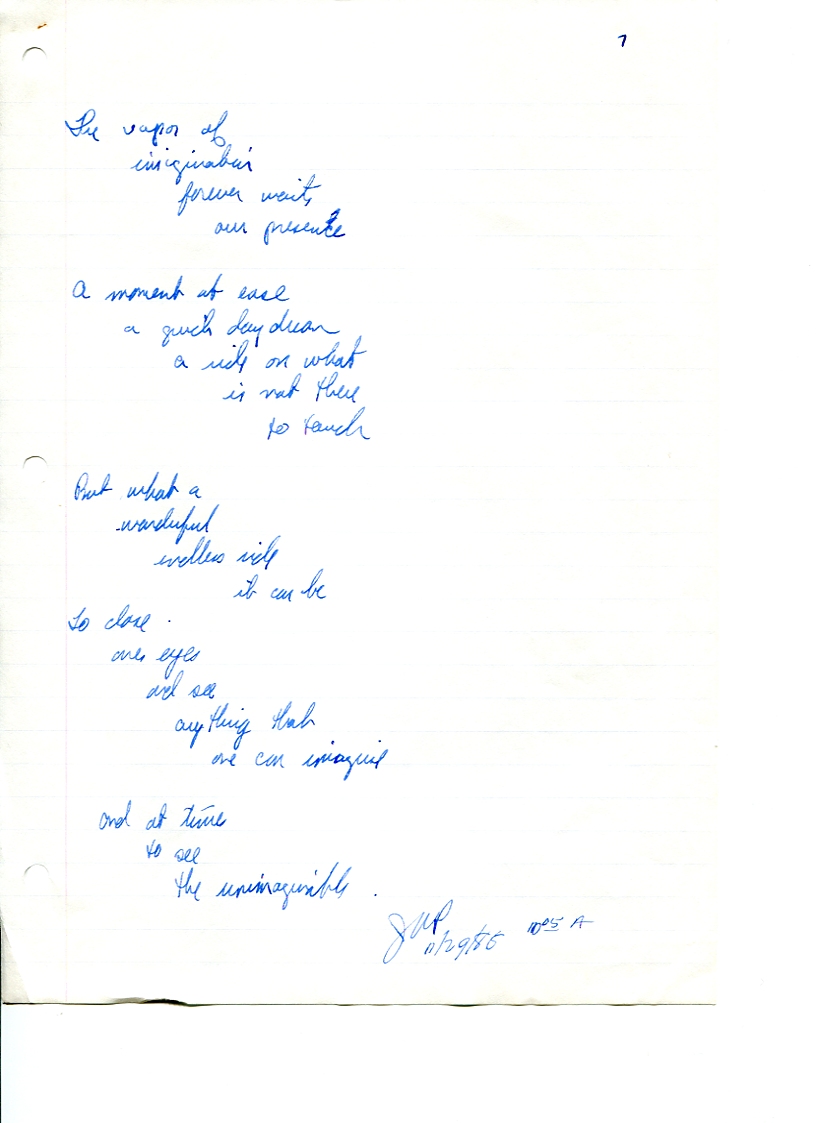 7
The vapor of
imagination
forever waits
our presence
A moment at ease
a quick day dream
a ride on what
is not there
to touch
But what a
wonderful
endless ride
it can be
To close
ones eyes
and see
anything that
one can imagine
and at times
to see
the unimaginable.
11/29/85 10:05 A